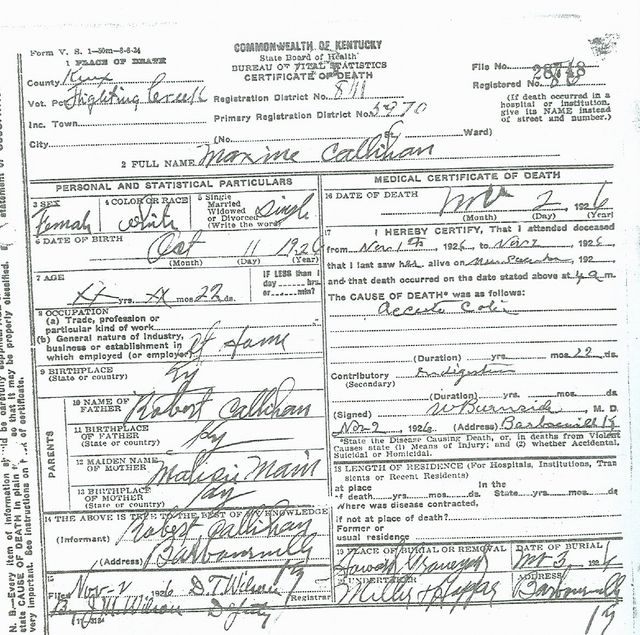 Form V. S. 1-50m-8-6-24
COMMONWEALTH OF KENTUCKY
State Board of Health
BUREAU OF VITAL STATISTICS
CERTIFICATE OF DEATH
1 PLACE OF DEATH
County Knox
File No. 28748
Registered No.
Vot. Pct. Fighting Creek
Registration District No.
(If death occurred in a hospital or institution, give its NAME instead of street and number.)
Inc. Town
Primary Registration District No. 5270
City (No. Ward)
2 FULL NAME Maxine Callihan
PERSONAL AND STATISTICAL PARTICULARS
3 SEX Female
4 COLOR OR RACE White
5 Single Married Widowed or Divorced (Write the word) Single
6 DATE OF BIRTH Oct 11 1926
(Month) (Day) (Year)
7 AGE
xx yrs. xx mos. 22 ds.
IF LESS than 1 day hrs. or min?
8 OCCUPATION
(a) Trade, profession or particular kind of work
(b) General nature of industry, business or establishment in which employed (or employer) At Home
9 BIRTHPLACE (State or country) Ky
PARENTS
10 NAME OF FATHER Robert Callihan
11 BIRTHPLACE OF FATHER (State or country) Ky
12 MAIDEN NAME OF MOTHER
13 BIRTHPLACE OF MOTHER (State or country)
14 THE ABOVE IS TRUE TO THE BEST OF MY KNOWLEDGE
(Informant) Robert Callihan
(Address) Barbourville
Ky
15
Filed Nov-2 1926 D. T. Wilson Registrar
By J. M. Wilson Deputy
MEDICAL CERTIFICATE OF DEATH
16 DATE OF DEATH Nov 2, 1926
(Month) (Day) (Year)
17 I HEREBY CERTIFY, That I attended deceased
from Nov 1st, 1926, to Nov 2, 1926,
that I last saw her alive on 192
and that death occurred on the date stated above at 4 a m.
The CAUSE OF DEATH* was as follows:
(Duration) yrs. mos. 22 ds.
Contributory Indigestion
(Secondary)
(Duration) yrs. mos. ds.
(Signed) W Burnside, M. D.
Nov-2, 1926 (Address) Barbourville Ky
*State the Disease Causing Death, or, in deaths from Violent Causes state (1) Means of Injury; and (2) whether Accidental, Suicidal or Homicidal.
18 LENGTH OF RESIDENCE (For Hospitals, Institutions, Transients or Recent Residents)
at place of death yrs. mos. ds. In the State yrs. mos. ds
Where was disease contracted,
if not at place of death?
Former or usual residence
19 PLACE OF BURIAL OR REMOVAL
DATE OF BURIAL
Nov 3, 1926
20 UNDERTAKER
ADDRESS
Barbourville
Ky